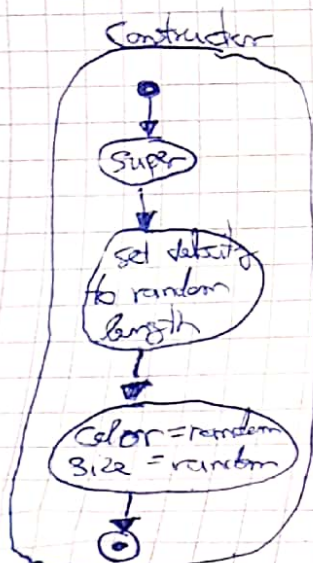 Constructor
super
set velocity
to random
length
color = random
size = random